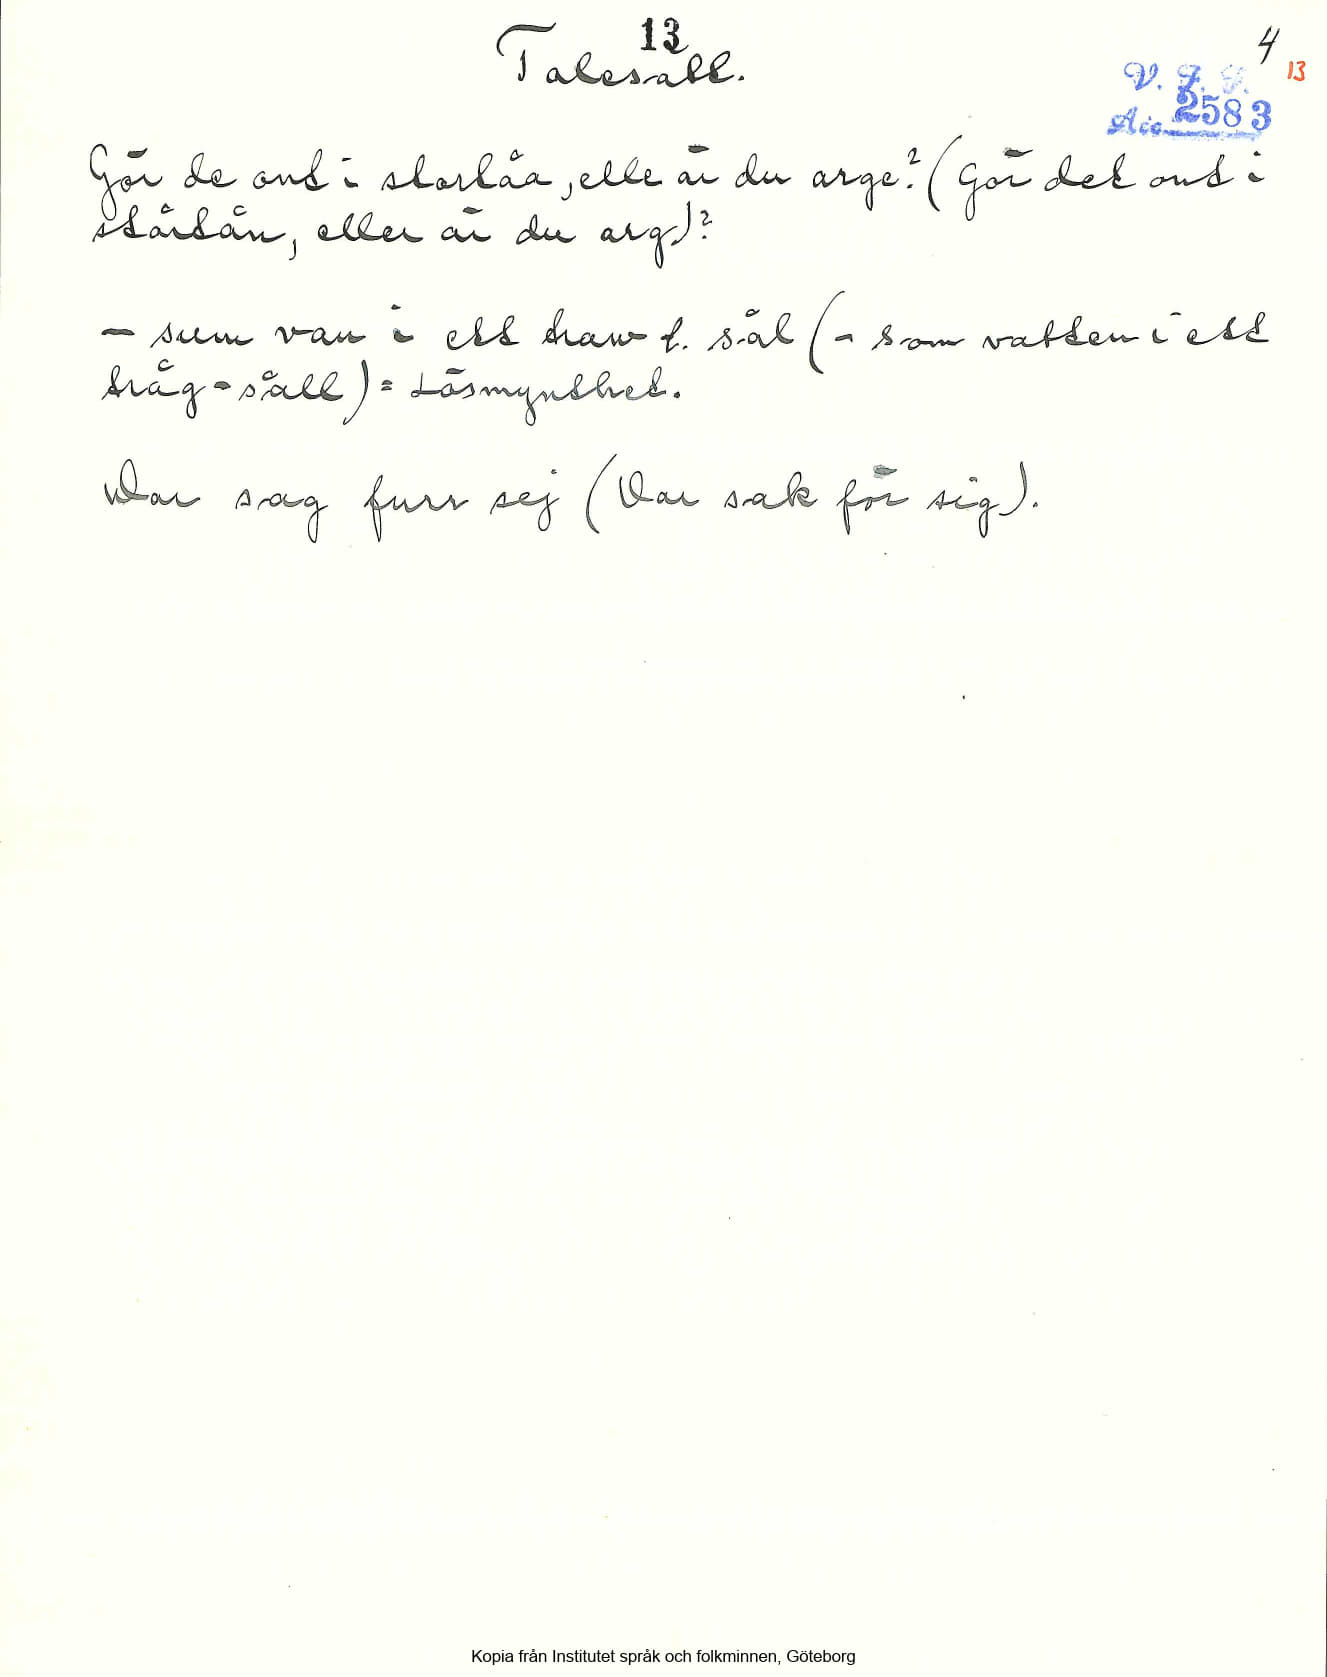 13
4
Talesätt.
13
V. F. F.
Acc. 2583
Gör de ont i stortåa, elle är du arge? (Gör det ont i
stårtån, eller är du arg)?
— sum van i ett traw l. sål (- som vatten i ett
tråg - såll) = Lösmynthet.
War sag furr sej (Var sak för sig).
Kopia från Institutet språk och folkminnen, Göteborg